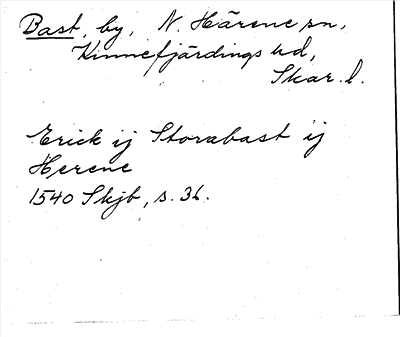 Bast, by, N. Härene sn,
Kinnefjärdings hd,
Skar. l.
Erick ij Storabast ij
Herene
1540 Skjb, s. 36.